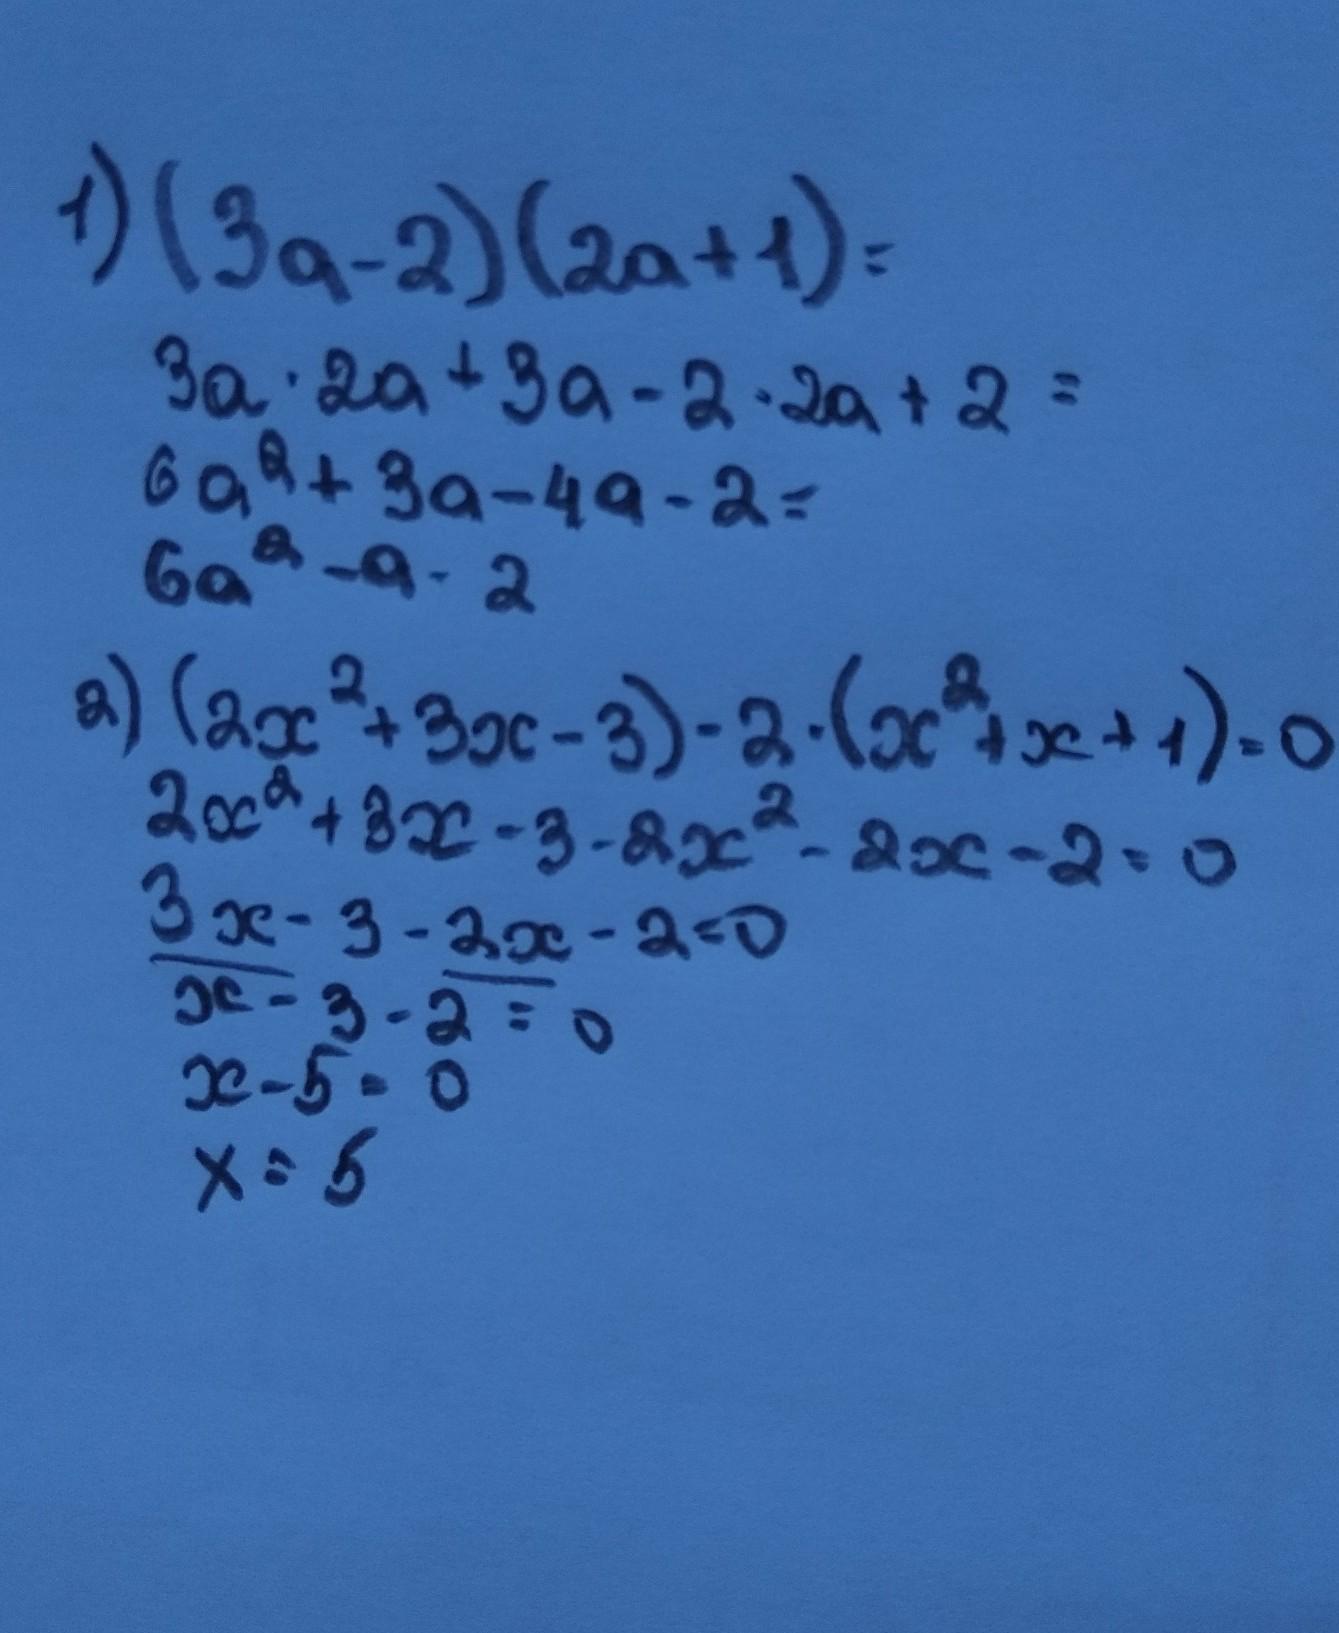 1) (3a-2)(2a+1)=
3a·2a+3a-2·2a+2=
6a²+3a-4a-2=
6a²-a-2
2) (2x²+3x-3)-2·(x²+x+1)=0
2x²+3x-3-2x²-2x-2=0
3x-3-2x-2=0
x-3-2=0
x-5=0
x=5